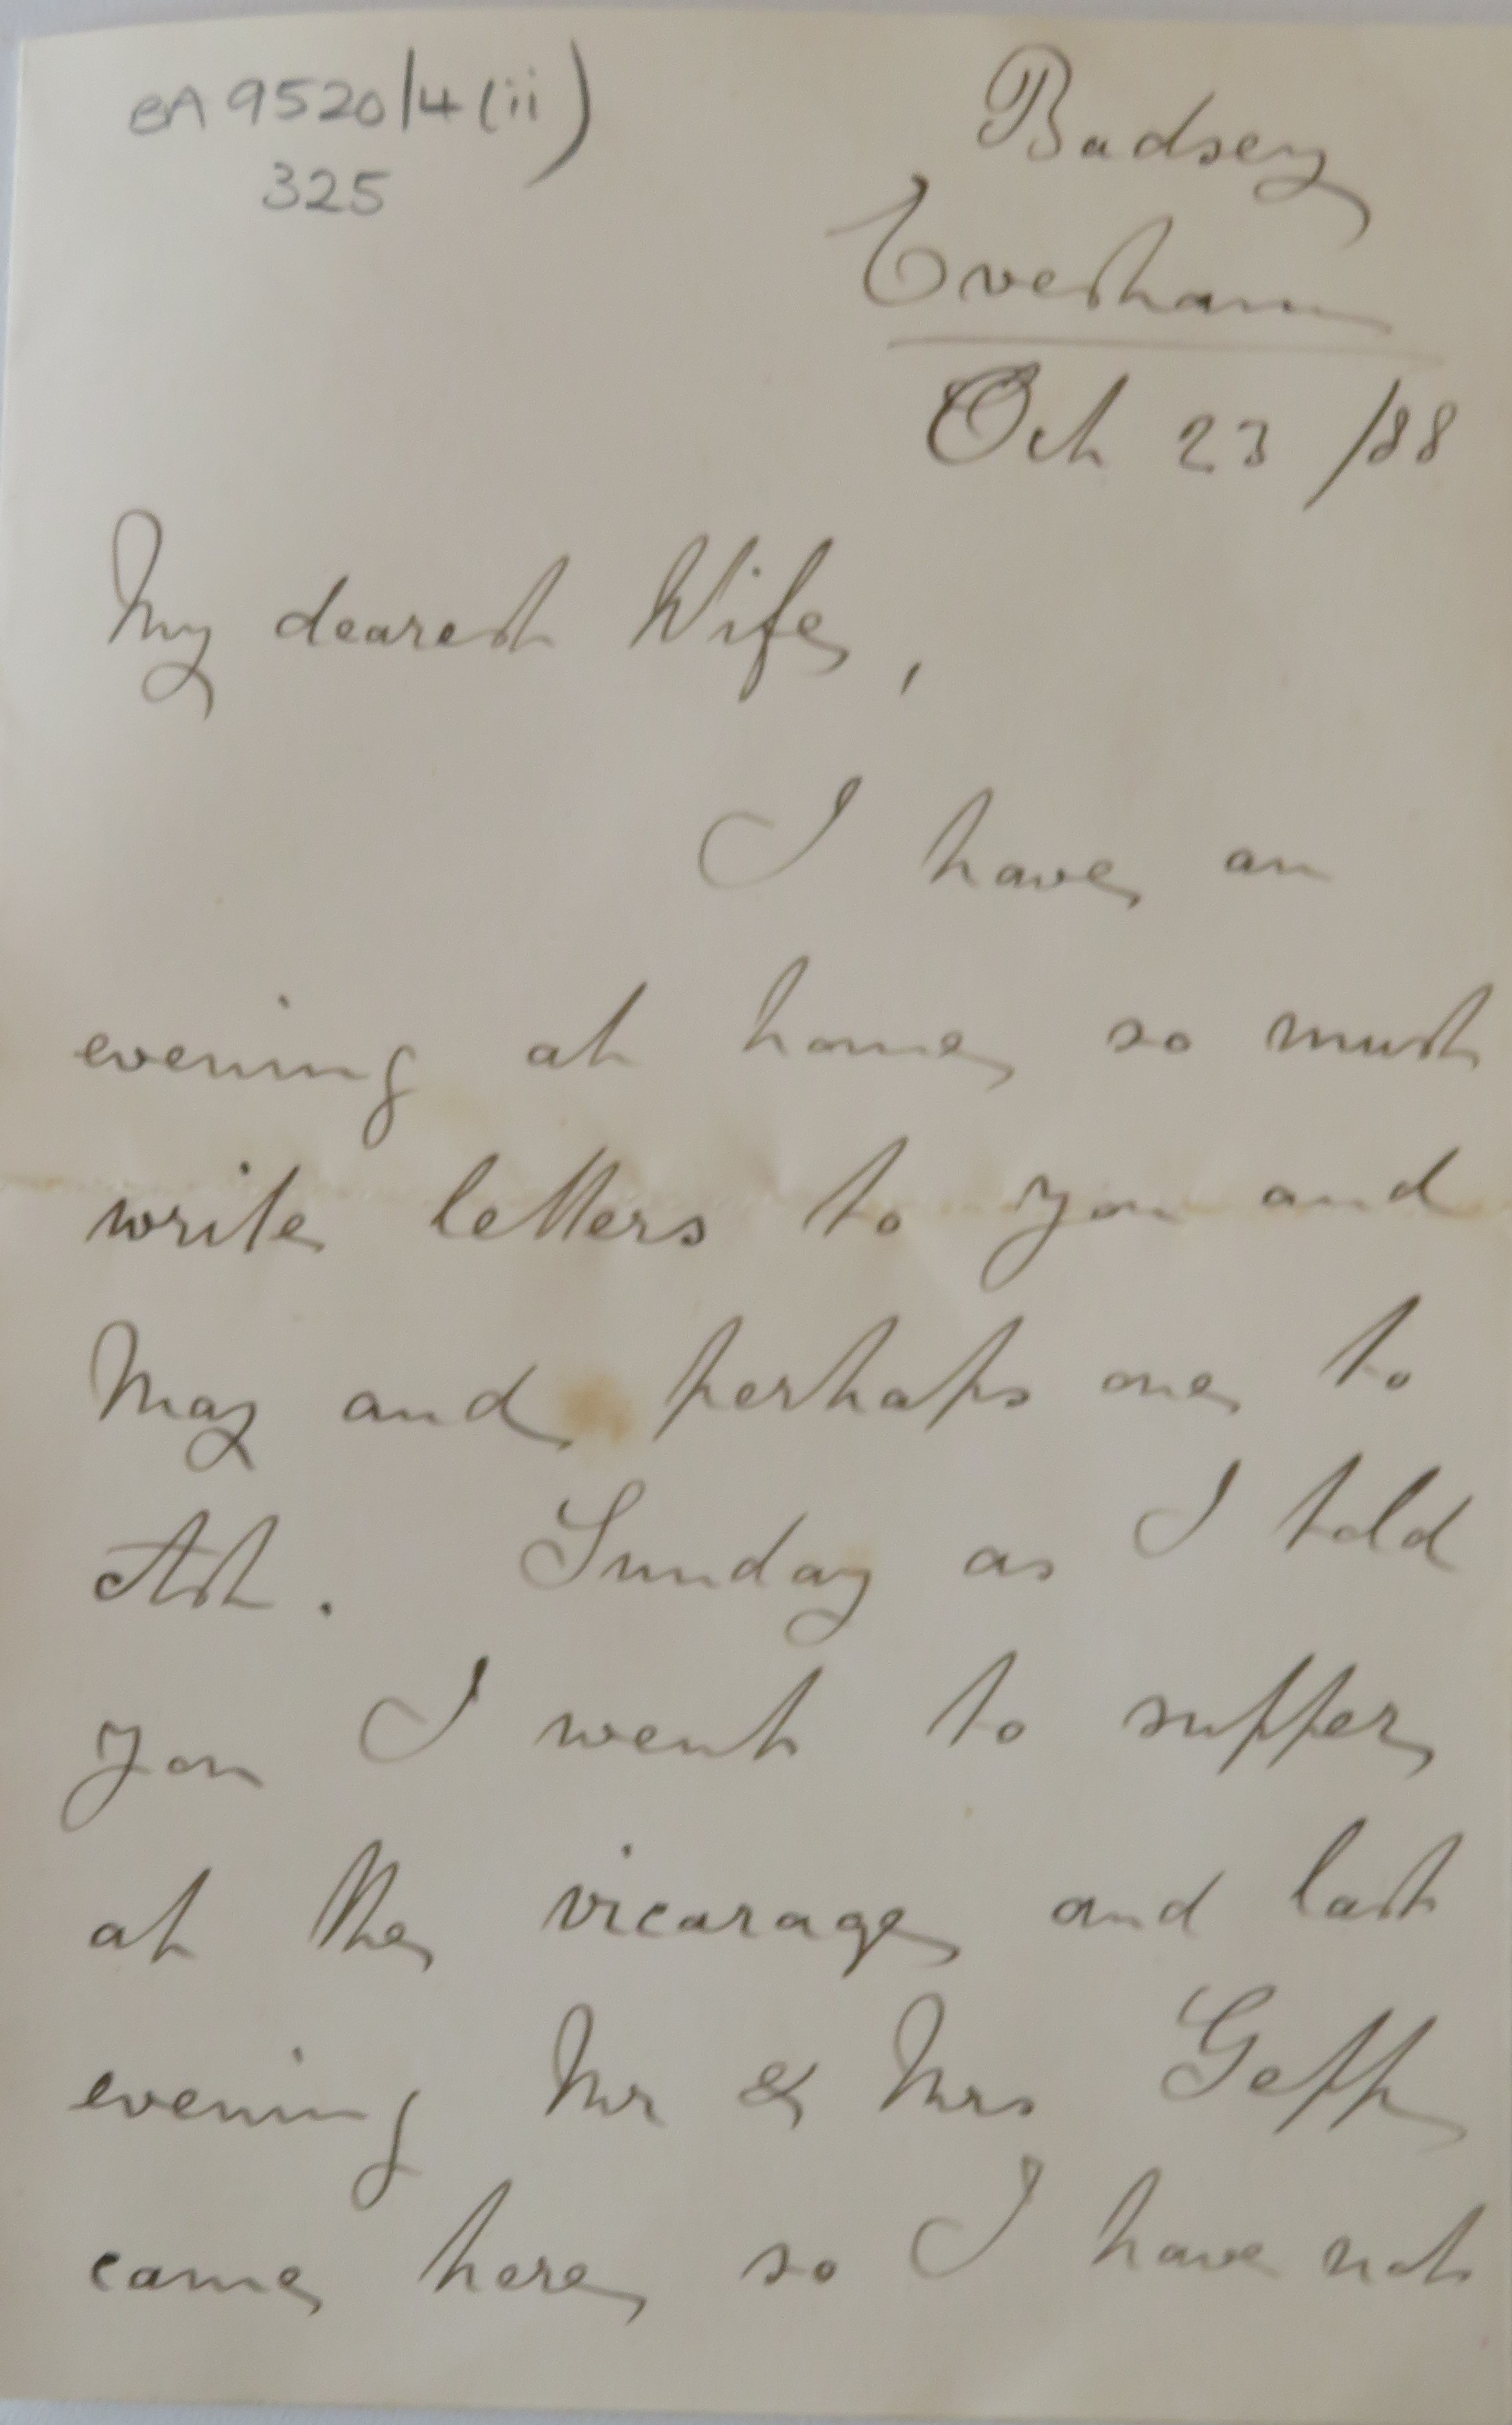 BA 9520/4(ii)
325
Badsey
Evesham
Oct 23 /88
My dearest Wife,
I have an
evening at home so must
write letters to you and
May and perhaps one to
Ast. Sunday as I told
you I went to supper
at the vicarage and last
evening Mr & Mrs Gepp
came here so I have not